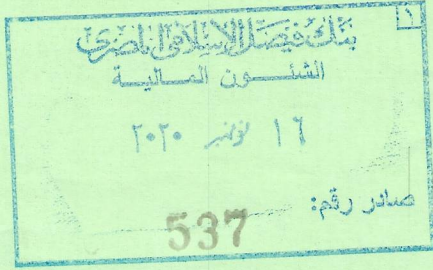 ١
بنك فيصل الإسلامى المصرى
الشئــون المــالية
١٦ نوفمبر ٢٠٢٠
صادر رقم:
537